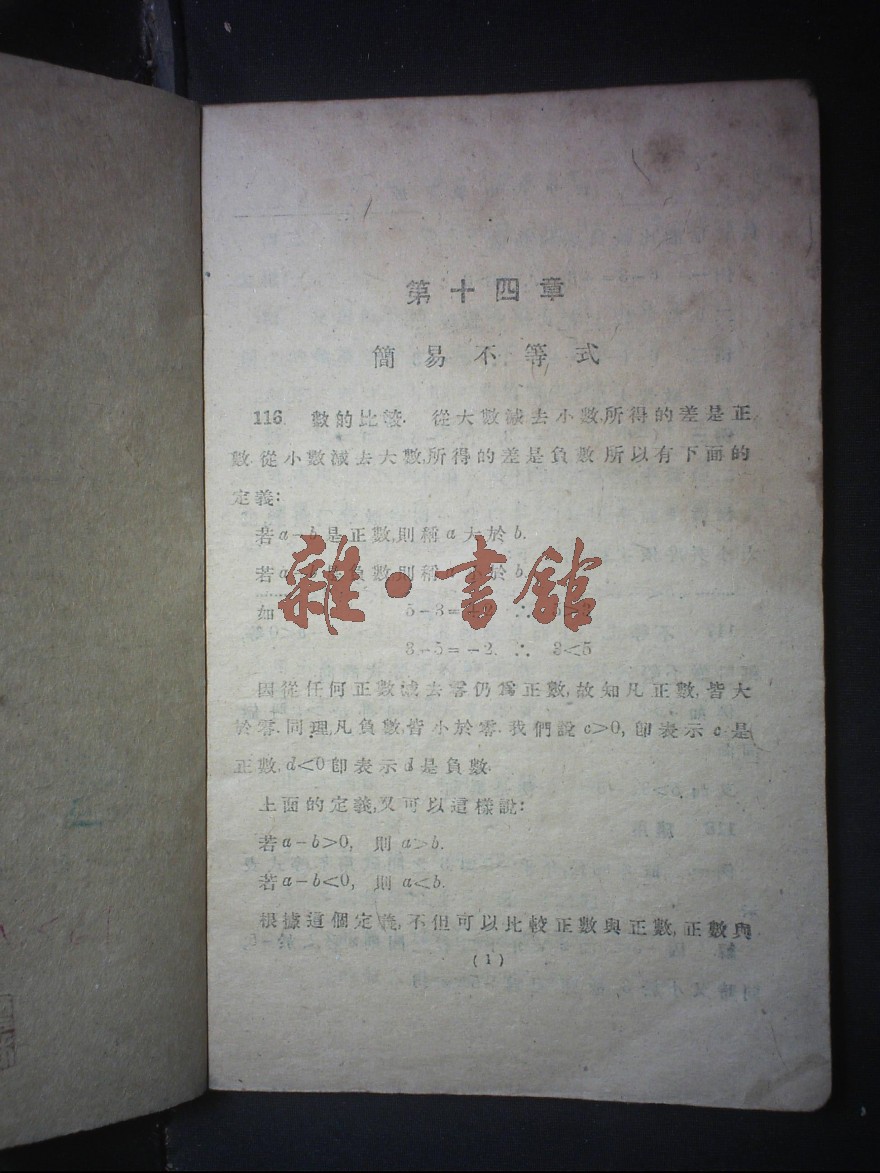 第十四章
簡易不等式
116. 數的比較. 從大數減去小數,所得的差是正
數.從小數減去大數,所得的差是負數.所以有下面的
定義:
若a-b是正數,則稱a大於b.
若a-b是負數則稱 小於b
雜·書館
如 5-3= ∴ 5>
3-5=-2. ∴ 3<5
因從任何正數減去零仍爲正數,故知凡正數,皆大
於零.同理,凡負數,皆小於零.我們說c>0, 卽表示c是
正數,d<0卽表示d是負數.
上面的定義,又可以這樣說:
若a-b>0, 則a>b.
若a-b<0, 則a<b.
根據這個定義,不但可以比較正數與正數,正數與
(1)